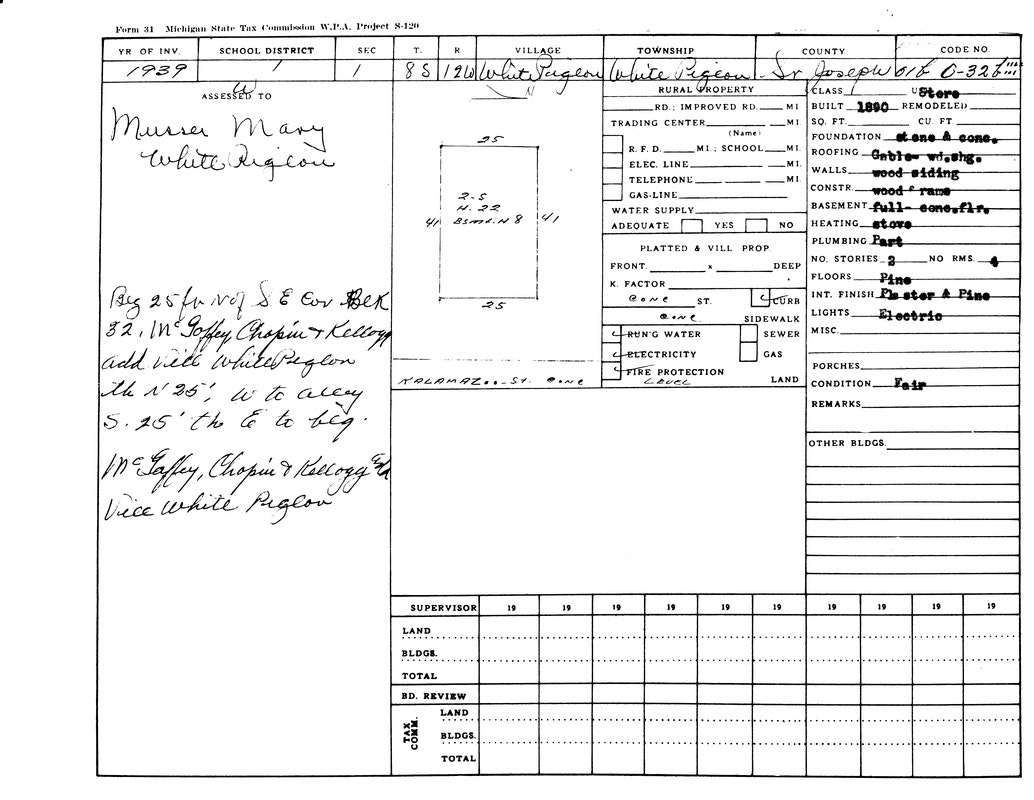 Form 31 Michigan State Tax Commission W.P.A. Project S-120
YR OF INV. SCHOOL DISTRICT SEC T. R VILLAGE TOWNSHIP COUNTY CODE NO.
1939 1 1 8S 12W White Pigeon White Pigeon St Joseph 01b 0-32b
ASSESSED TO
Musser Mary
White Pigeon
Beg 25 ft N of S E Cor Blk
32, McGaffey, Chopin & Kellogg
add Vill White Pigeon
th N 25', W to alley
S. 25' th E to beg.
McGaffey, Chopin & Kellogg
Vill White Pigeon
N
25
2-S
H. 22
Bsmt. H 8
41 41
25
KALAMAZOO ST. CONC
RURAL PROPERTY
RD.; IMPROVED RD. MI
TRADING CENTER MI.
(Name)
R. F. D. MI.; SCHOOL MI.
ELEC. LINE MI.
TELEPHONE MI.
GAS-LINE
WATER SUPPLY
ADEQUATE YES NO
PLATTED & VILL PROP.
FRONT. x DEEP
K. FACTOR
CONC ST. CURB
CONC SIDEWALK
RUN'G WATER SEWER
ELECTRICITY GAS
FIRE PROTECTION
LEVEL LAND
CLASS Store
BUILT 1890 REMODELED
SQ. FT. CU. FT.
FOUNDATION stone & conc.
ROOFING Gable- wd.shg.
WALLS wood siding
CONSTR. wood f rame
BASEMENT full- conc.flr.
HEATING stove
PLUMBING Part
NO. STORIES 2 NO RMS. 4
FLOORS Pine
INT. FINISH Pla ster & Pine
LIGHTS Electric
MISC.
PORCHES
CONDITION Fair
REMARKS
OTHER BLDGS.
SUPERVISOR 19 19 19 19 19 19 19 19 19 19
LAND
BLDGS.
TOTAL
BD. REVIEW
TAX COMM.
LAND
BLDGS.
TOTAL